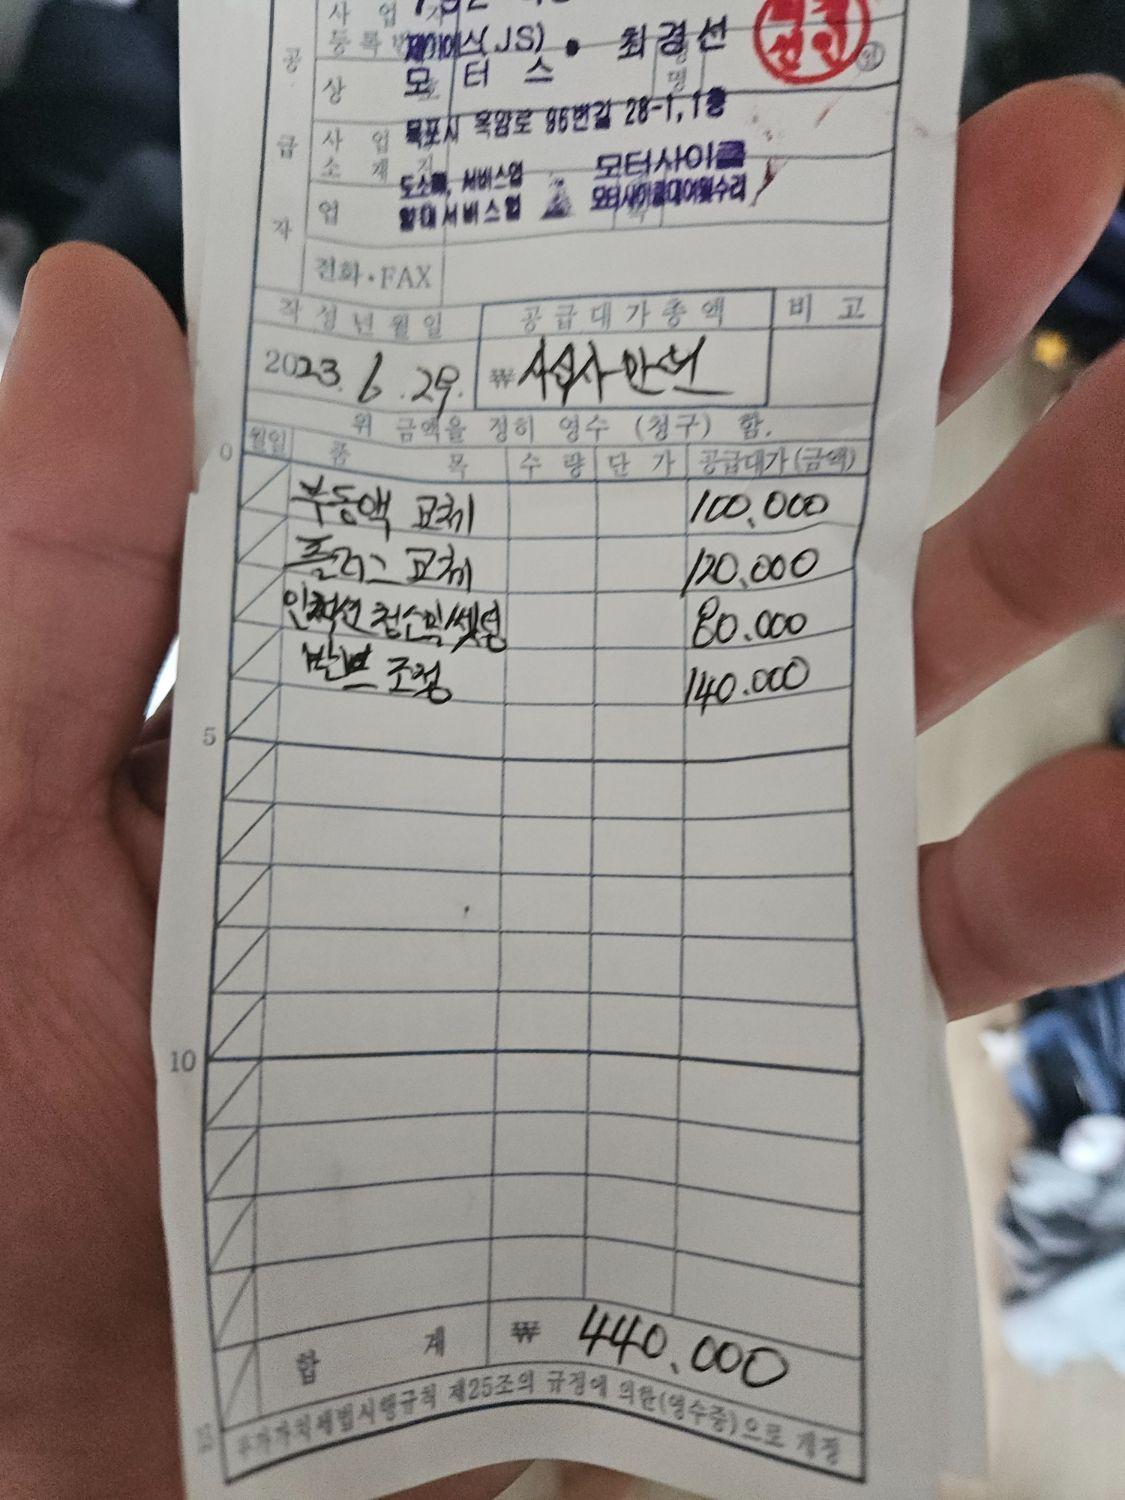 공급자
사업자
등록번
제이에스(JS) 최경선
상 모터스 명
사업 목포시 옥암로 96번길 28-1, 1층
소재지
도소매, 서비스업 모터사이클
업 임대서비스업 모터사이클대여및수리
전화·FAX
작성년월일 공급대가총액 비고
2023. 6. 29. ₩사십사만원
위 금액을 정히 영수 (청구) 함.
월일 품목 수량 단가 공급대가(금액)
부동액 교체 100,000
플러그 교체 120,000
인젝션 청소및/셋팅 80.000
밸브 조정 140.000
5
10
합계 ₩ 440,000
부가가치세법시행규칙 제25조의 규정에 의한(영수증)으로 개정